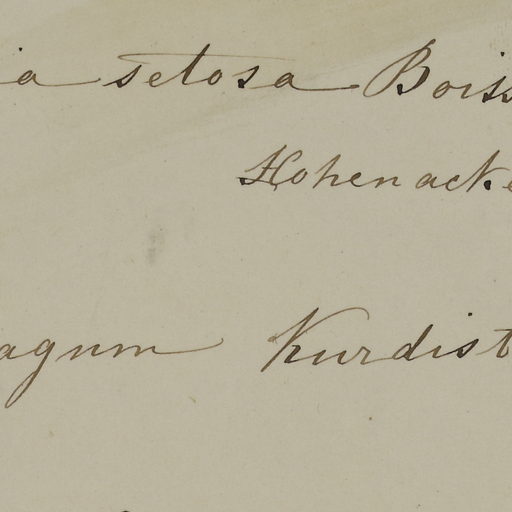 ia setosa Boiss
Hohenacke
agum Kurdist